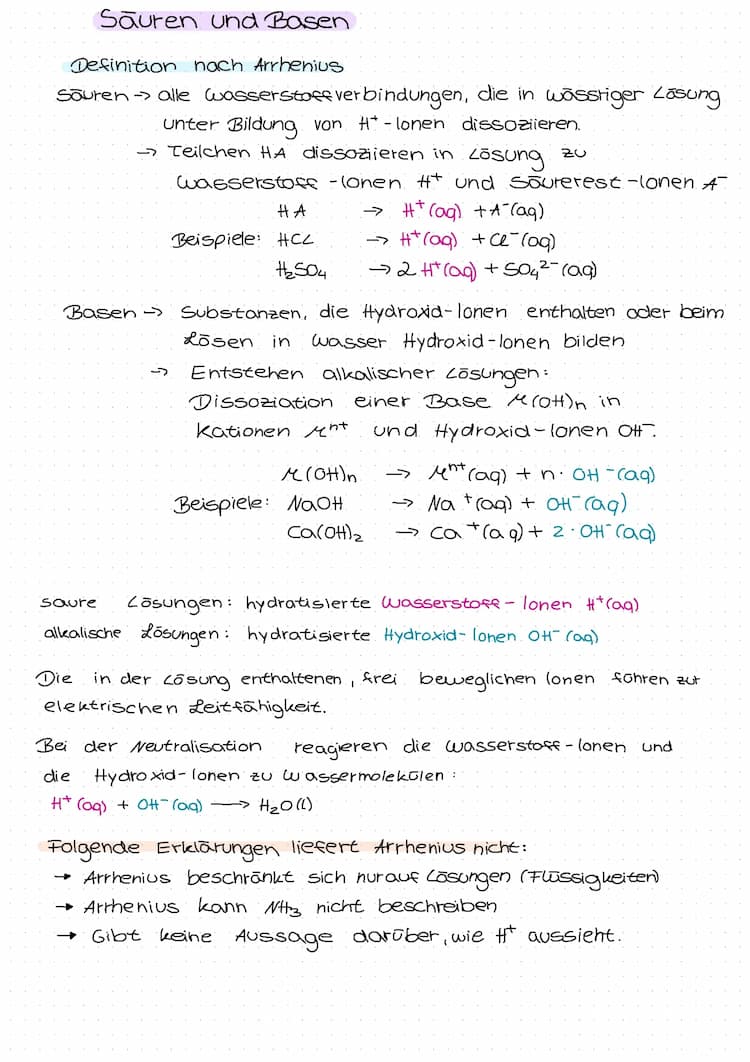 Säuren und Basen
Definition nach Arrhenius
Säuren → alle Wasserstoffverbindungen, die in wässriger Lösung
unter Bildung von H⁺-Ionen dissoziieren.
→ Teilchen HA dissoziieren in Lösung zu
Wasserstoff-Ionen H⁺ und Säurerest-Ionen A⁻
HA → H⁺(aq) + A⁻(aq)
Beispiele: HCl → H⁺(aq) + Cl⁻(aq)
H₂SO₄ → 2 H⁺(aq) + SO₄²⁻(aq)
Basen → Substanzen, die Hydroxid-Ionen enthalten oder beim
Lösen in Wasser Hydroxid-Ionen bilden
→ Entstehen alkalischer Lösungen:
Dissoziation einer Base M(OH)n in
Kationen Mⁿ⁺ und Hydroxid-Ionen OH⁻.
M(OH)n → Mⁿ⁺(aq) + n · OH⁻(aq)
Beispiele: NaOH → Na⁺(aq) + OH⁻(aq)
Ca(OH)₂ → Ca⁺(aq) + 2 · OH⁻(aq)
saure Lösungen: hydratisierte Wasserstoff-Ionen H⁺(aq)
alkalische Lösungen: hydratisierte Hydroxid-Ionen OH⁻(aq)
Die in der Lösung enthaltenen, frei beweglichen Ionen führen zur
elektrischen Leitfähigkeit.
Bei der Neutralisation reagieren die Wasserstoff-Ionen und
die Hydroxid-Ionen zu Wassermolekülen:
H⁺(aq) + OH⁻(aq) → H₂O(l)
Folgende Erklärungen liefert Arrhenius nicht:
→ Arrhenius beschränkt sich nur auf Lösungen (Flüssigkeiten)
→ Arrhenius kann NH₃ nicht beschreiben
→ Gibt keine Aussage darüber, wie H⁺ aussieht.